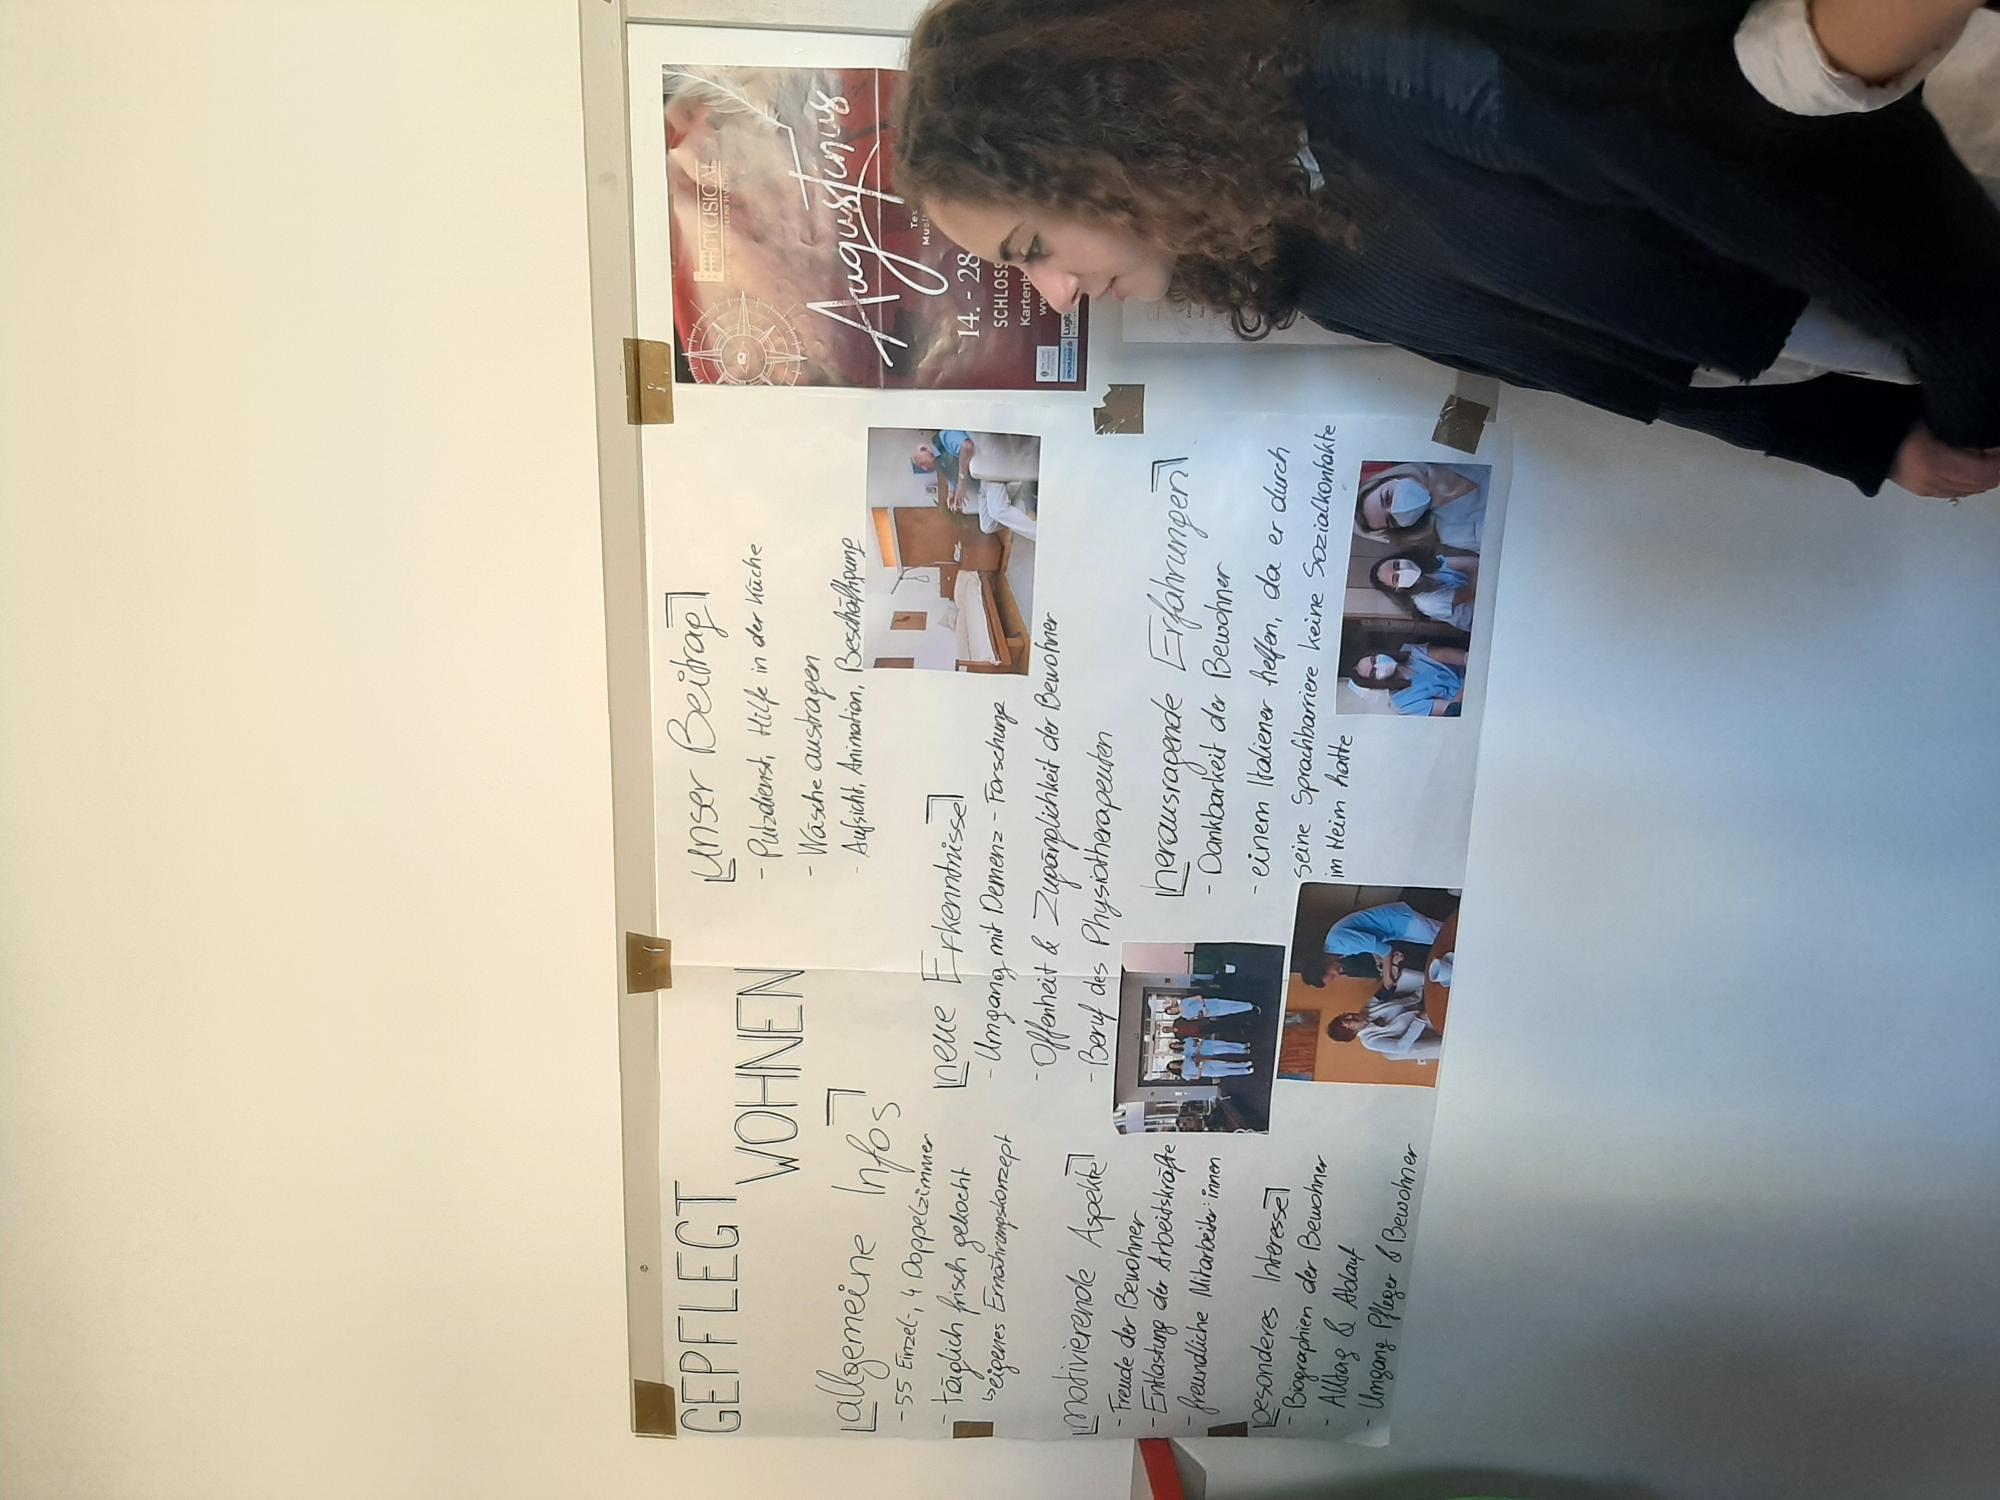 GEPFLEGT
WOHNEN
allgemeine Infos
- 55 Einzel-, 4 Doppelzimmer
- täglich frisch gekocht
↳ eigenes Ernährungskonzept
motivierende Aspekte
- Freude der Bewohner
- Entlastung der Arbeitskräfte
- freundliche Mitarbeiter:innen
besonderes Interesse
- Biographien der Bewohner
- Alltag & Ablauf
- Umgang Pfleger & Bewohner
unser Beitrag
- Putzdienst, Hilfe in der Küche
- Wäsche austragen
- Aufsicht, Animation, Beschäftigung
neue Erkenntnisse
- Umgang mit Demenz - Forschung
- Offenheit & Zugänglichkeit der Bewohner
- Beruf des Physiotherapeuten
herausragende Erfahrungen
- Dankbarkeit der Bewohner
- einem Italiener helfen, da er durch
seine Sprachbarriere keine Sozialkontakte
im Heim hatte
MUSICAL
Augustinus
14. - 28
SCHLOSS